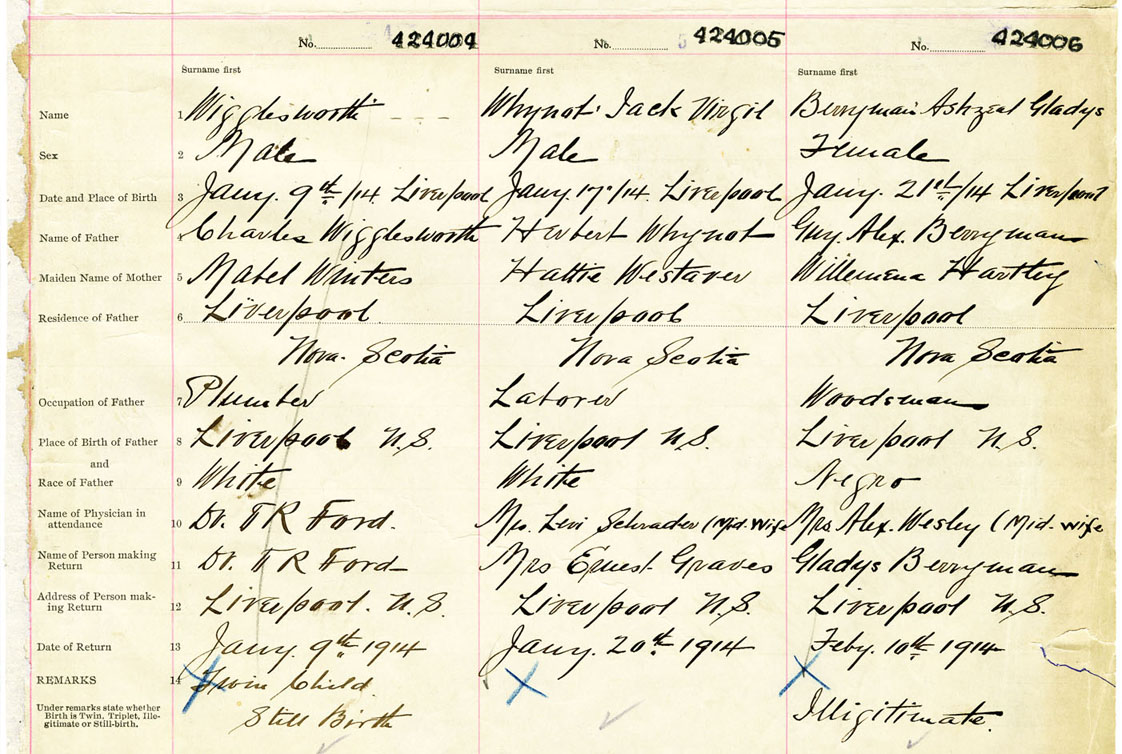 No. 424004 No. 424005 No. 424006
Surname first Surname first Surname first
Name 1 Wigglesworth - - - Whynot Jack Virgil Berryman Ashzeal Gladys
Sex 2 Male Male Female
Date and Place of Birth 3 Jany. 9th/14 Liverpool Jany 17/14 Liverpool Jany. 21st/14 Liverpool
Name of Father 4 Charles Wigglesworth Herbert Whynot Guy Alex. Berryman
Maiden Name of Mother 5 Mabel Winters Hattie Westaver Willemena Hartley
Residence of Father 6 Liverpool Liverpool Liverpool
Nova Scotia Nova Scotia Nova Scotia
Occupation of Father 7 Plumber Laborer Woodsman
Place of Birth of Father 8 Liverpool N.S. Liverpool N.S. Liverpool N.S.
and
Race of Father 9 White White Negro
Name of Physician in
attendance 10 Dr. T R Ford. Mrs. Levi Schrader (Mid. Wife Mrs Alex. Wesley (Mid. Wife
Name of Person making
Return 11 Dr. T R Ford Mrs Ernest Graves Gladys Berryman
Address of Person mak-
ing Return 12 Liverpool. N.S. Liverpool N.S. Liverpool N.S.
Date of Return 13 Jany. 9th 1914 Jany. 20th 1914 Feby. 10th 1914
REMARKS 14 Twin Child.
Under remarks state whether
Birth is Twin, Triplet, Ille-
gitimate or Still-birth. Still Birth Illigitimate.